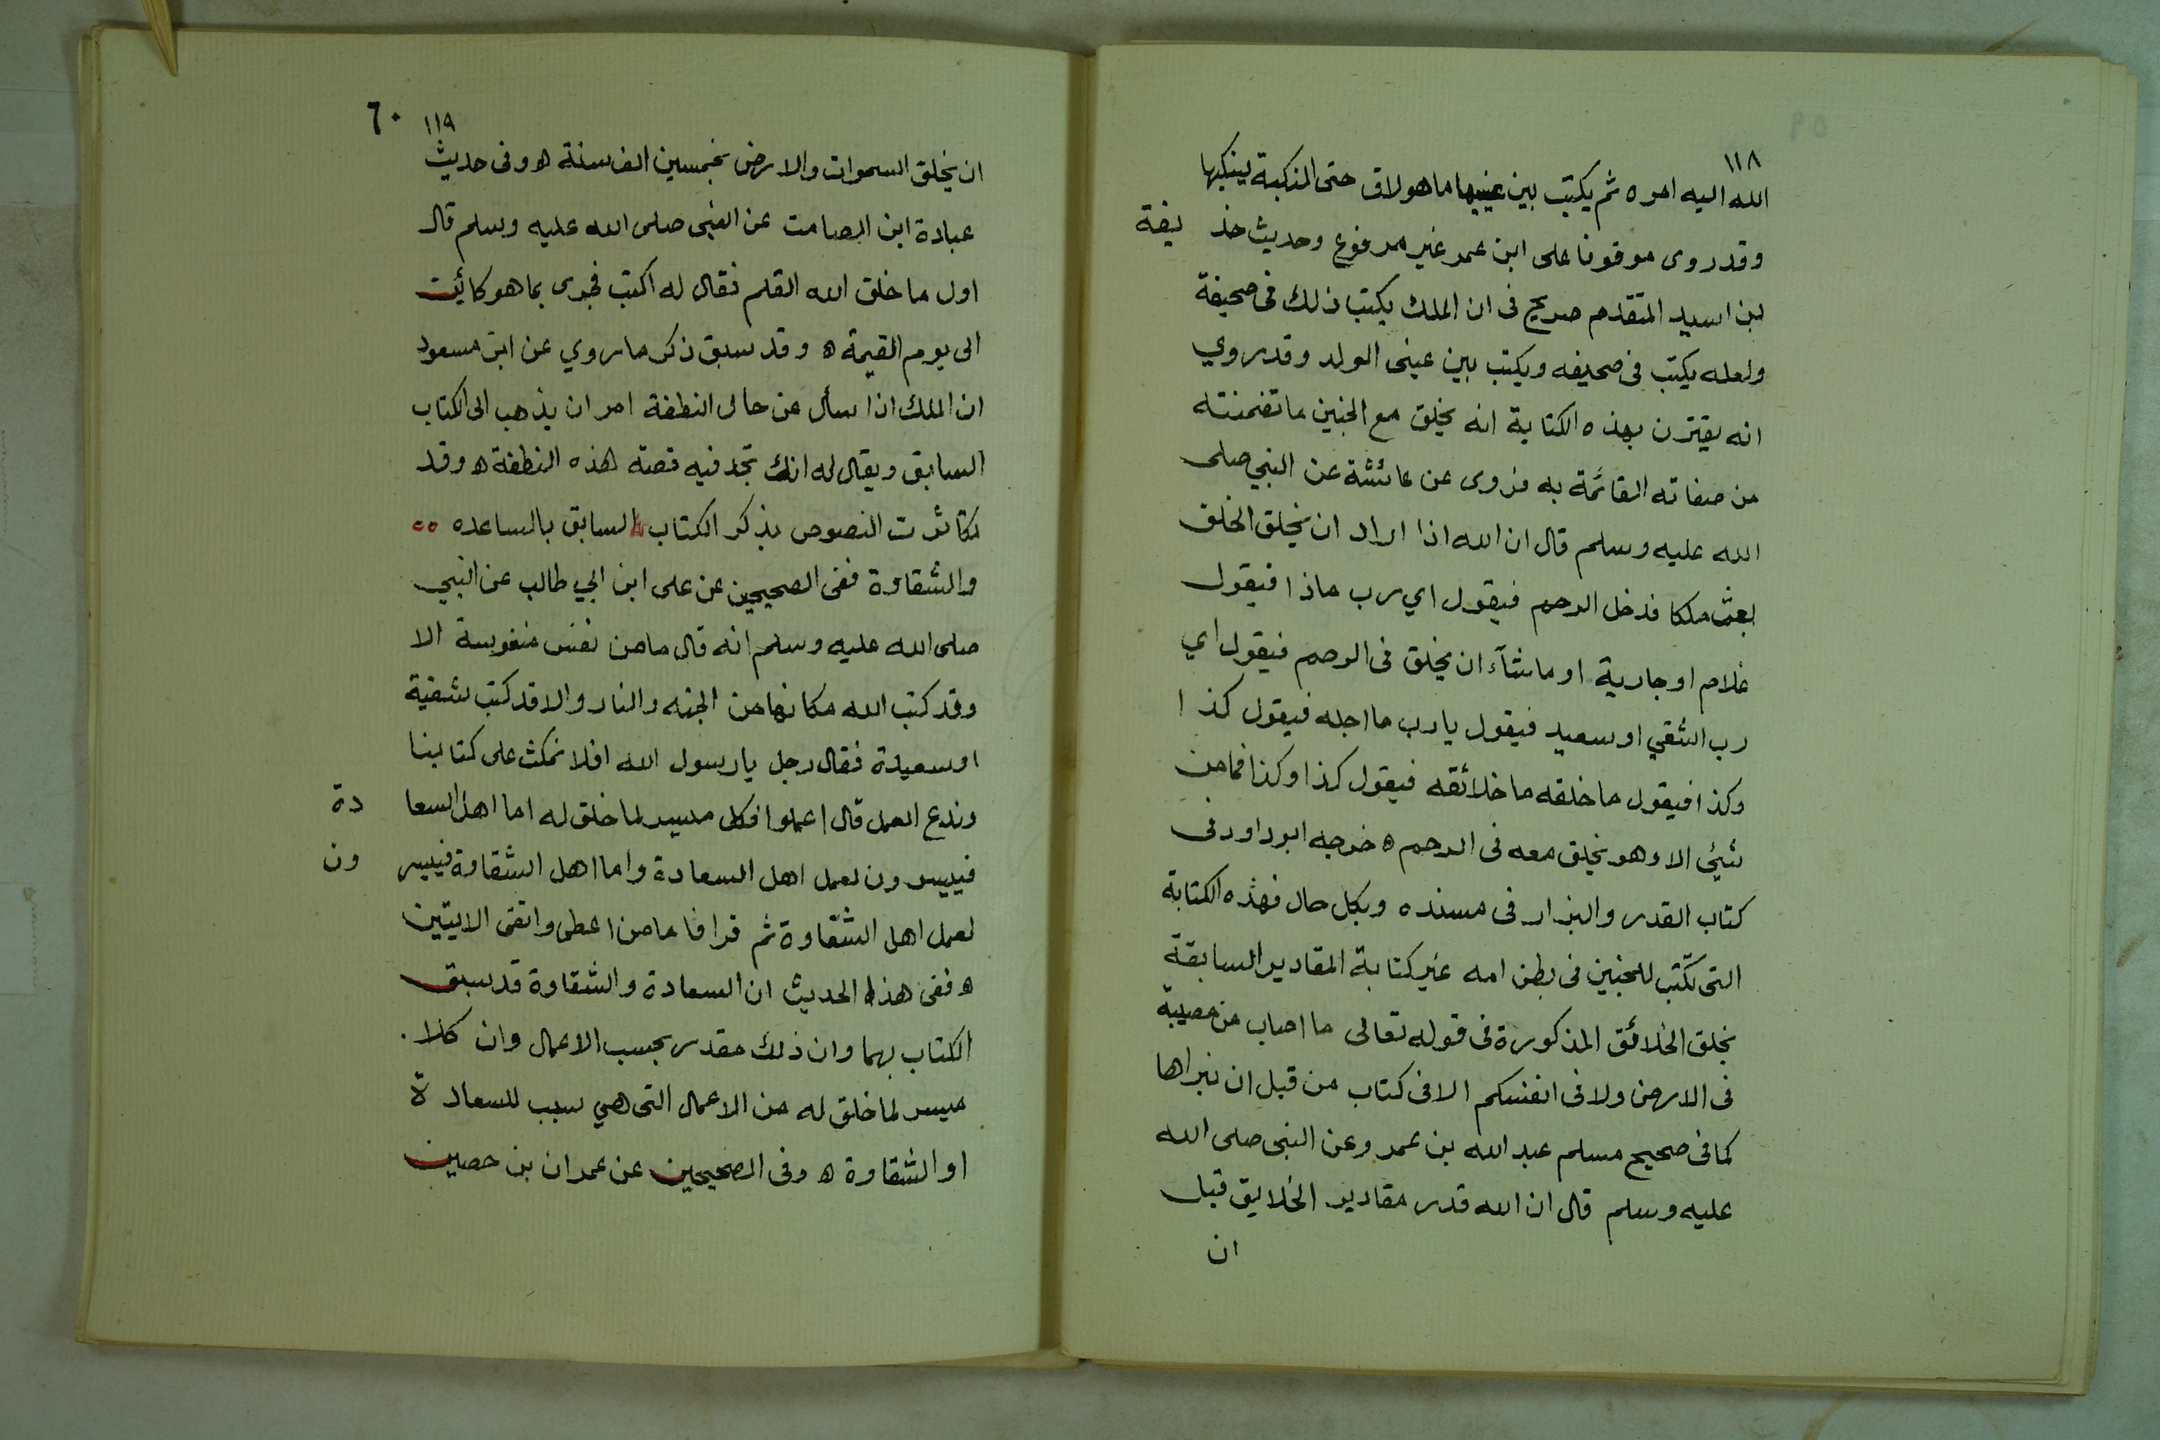 ١١٨
الله اليه امره ثم يكتب بين عينيها ما هو لاق حتى المنكبة ينكبها
وقد روى موقوفا على ابن عمر غير مرفوع وحديث حذ يفة
بن اسيد المتقدم صريح فى ان الملك يكتب ذلك فى صحيفة
ولعله يكتب فى صحيفه ويكتب بين عينى الولد وقد روي
انه يقترن بهذه الكتابة انه يخلق مع الجنين ما تضمنته
من صفاته القائمة به فروى عن عائشة عن النبي صلى
الله عليه وسلم قال ان الله اذا اراد ان يخلق الخلق
بعث ملكا فدخل الرحم فيقول اي رب ماذا فيقول
غلام او جارية او ما شآء ان يخلق فى الرحم فيقول اي
رب اشقي او سعيد فيقول يا رب ما اجله فيقول كذا
وكذا فيقول ما خلقه ما خلائقه فيقول كذا وكذا فما من
شيئ الا وهو يخلق معه فى الرحم ه خرجه ابو داود فى
كتاب القدر والبزار فى مسنده وبكل حال فهذه الكتابة
التى تكتب للجنين فى بطن امه غير كتابة المقادير السابقة
بخلق الخلائق المذكورة فى قوله تعالى ما اصاب من مصيبة
فى الارض ولا فى انفسكم الا فى كتاب من قبل ان نبراها
كما فى صحيح مسلم عبد الله بن عمر وعن النبى صلى الله
عليه وسلم قال ان الله قدر مقادير الخلايق قبل
ان
٦٠ ١١٩
ان يخلق السموات والارض بخمسين الف سنة ه وفى حديث
عبادة ابن الصامت عن النبى صلى الله عليه وسلم قال
اول ما خلق الله القلم فقال له اكتب فجرى بما هو كائن
الى يوم القيمة ه وقد سبق ذكر ما روي عن ابن مسعود
ان الملك اذا سأل عن حال النطفة امر ان يذهب الى الكتاب
السابق ويقال له انك تجد فيه قصة هذه النطفة ه وقد
تكاثرت النصوص بذكر الكتاب السابق بالساعده
والشقاوة ففى الصحيحين عن على ابن ابي طالب عن النبي
صلى الله عليه وسلم انه قال ما من نفس منفوسة الا
وقد كتب الله مكانها من الجنه والنار والا قد كتب شقية
او سعيدة فقال رجل يا رسول الله افلا نمكث على كتابنا
وندع العمل قال اعملوا فكل ميسر لما خلق له اما اهل السعا دة
فييسرون لعمل اهل السعادة واما اهل الشقاوة فييسر ون
لعمل اهل الشقاوة ثم قرا فاما من اعطى واتقى الايتين
ه ففى هذا الحديث ان السعادة والشقاوة قد سبق
الكتاب بهما وان ذلك مقدر بحسب الاعمال وان كلا .
ميسر لما خلق له من الاعمال التى هي سبب للسعادة
او الشقاوة ه وفى الصحيحين عن عمران بن حصين